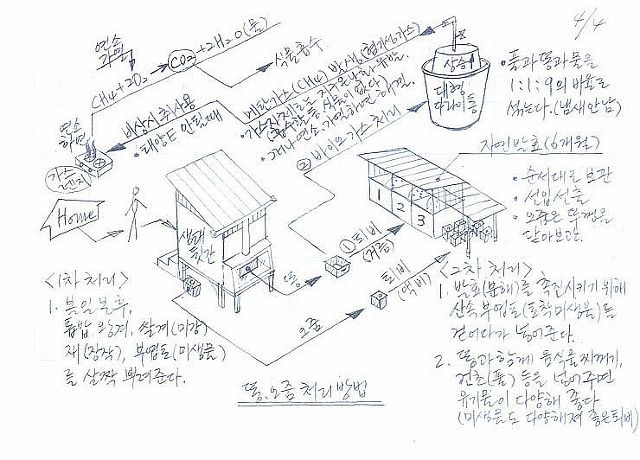 4/4
연소
과정
CH4+2O2 → CO2 + 2H2O(물)
식물흡수
메탄가스(CH4) 발생(혐기성가스)
• 가스 자체로는 지구온난화 주범
식물이 없다
• 그러나 연소, 기역하면 해결
② 바이오가스 처리
비상시 취사용
• 태양E 안될때
연소
하면
가스
렌지
상승↑
대형
다라이통
• 풀과 똥과 물을
1:1:9의 비율로
섞는다.(냄새 안남)
자연발효(6개월)
• 순서대로 보관
• 선입선출
• 오줌은 뚜껑을
닫아보관
1 2 3
Home
생태
뒷간
똥
① 퇴비
(거름)
퇴비
(액비)
오줌
<1차 처리>
1. 볼일본후,
톱밥, 왕겨, 쌀겨(미강)
재(장작), 부엽토(미생물)
를 살짝 뿌려준다.
<2차 처리>
1. 발효(분해)를 촉진시키기 위해
산속 부엽토(토착미생물)를
걷어다가 넣어준다.
2. 똥과 함께 음식물찌꺼기,
건초(풀) 등을 넣어주면
유기물이 다양해 좋다
(미생물도 다양해져 좋은퇴비)
똥, 오줌 처리 방법